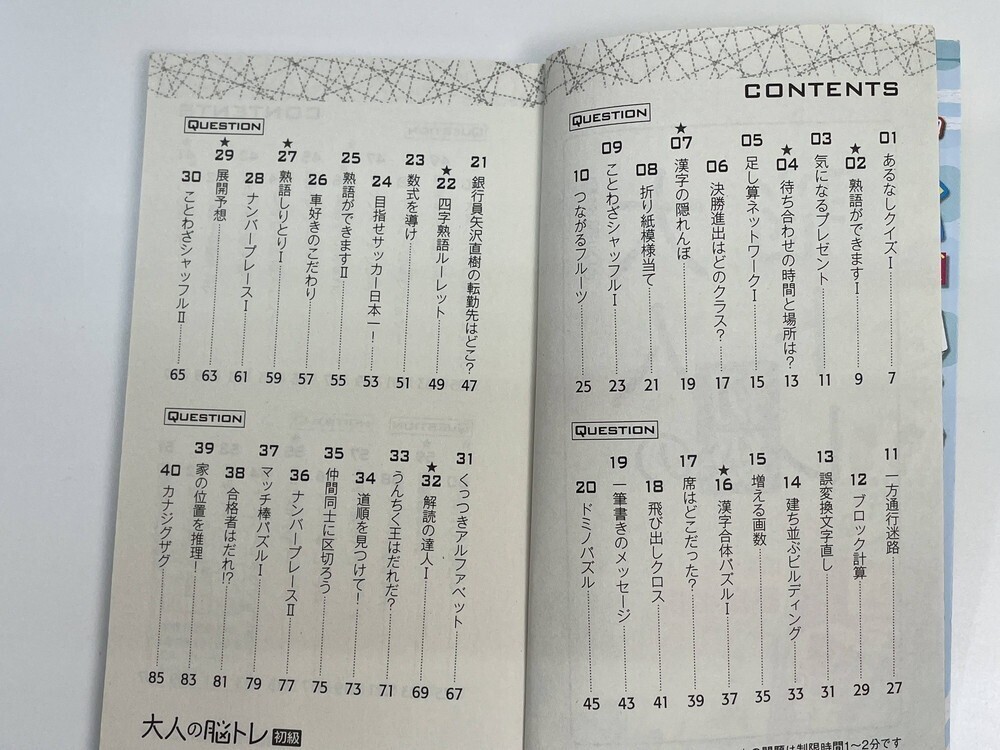 CONTENTS
QUESTION
01 あるなしクイズⅠ 7
★02 熟語ができますⅠ 9
03 気になるプレゼント 11
★04 待ち合わせの時間と場所は? 13
05 足し算ネットワークⅠ 15
06 決勝進出はどのクラス? 17
★07 漢字の隠れんぼ 19
08 折り紙模様当て 21
09 ことわざシャッフルⅠ 23
10 つながるフルーツ 25
QUESTION
11 一方通行迷路 27
12 ブロック計算 29
13 誤変換文字直し 31
14 建ち並ぶビルディング 33
15 増える画数 35
★16 漢字合体パズルⅠ 37
17 席はどこだった? 39
18 飛び出しクロス 41
19 一筆書きのメッセージ 43
20 ドミノパズル 45
の問題は制限時間1〜2分です
QUESTION
21 銀行員矢沢直樹の転勤先はどこ? 47
★22 四字熟語ルーレット 49
23 数式を導け 51
24 目指せサッカー日本一! 53
25 熟語ができますⅡ 55
26 車好きのこだわり 57
★27 熟語しりとりⅠ 59
28 ナンバープレースⅠ 61
★29 展開予想 63
30 ことわざシャッフルⅡ 65
QUESTION
31 くっつきアルファベット 67
★32 解読の達人Ⅰ 69
33 うんちく王はだれだ? 71
34 道順を見つけて! 73
35 仲間同士に区切ろう 75
36 ナンバープレースⅡ 77
37 マッチ棒パズルⅠ 79
38 合格者はだれ!? 81
39 家の位置を推理! 83
40 カナジグザグ 85
大人の脳トレ 初級